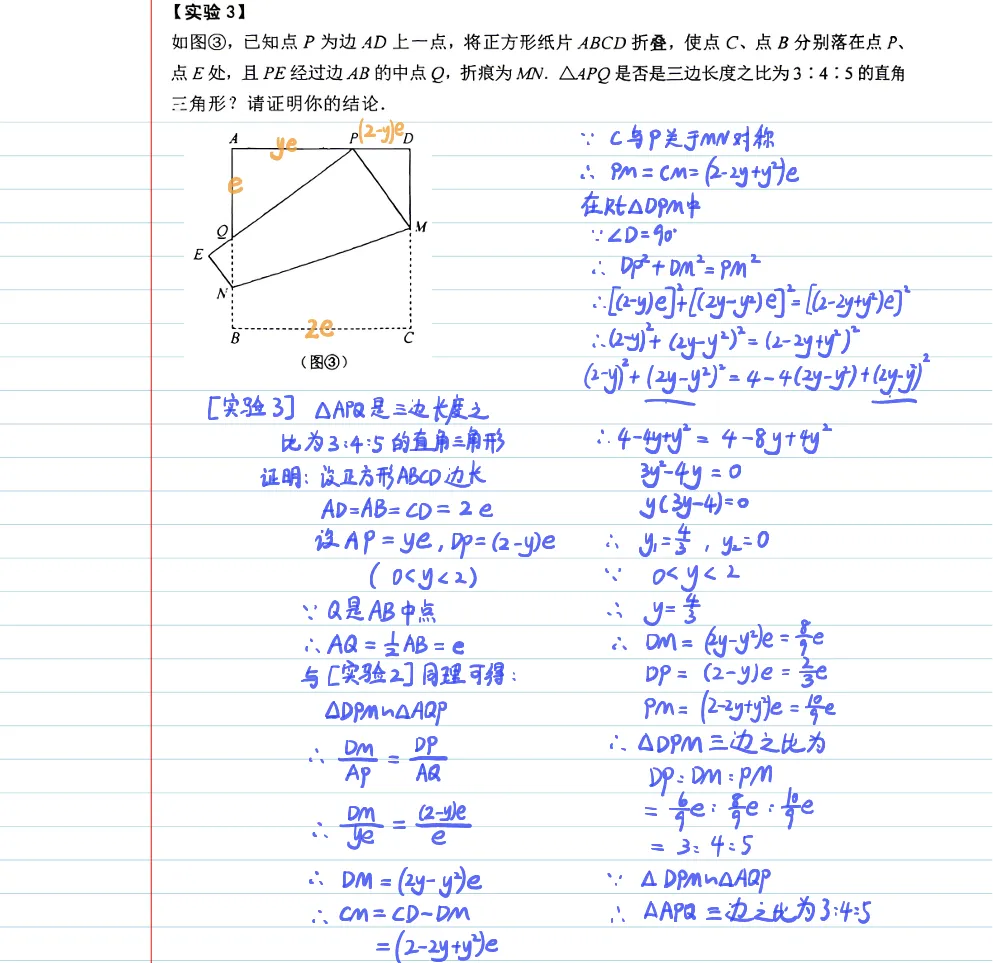 【实验 3】
如图③，已知点 P 为边 AD 上一点，将正方形纸片 ABCD 折叠，使点 C、点 B 分别落在点 P、
点 E 处，且 PE 经过边 AB 的中点 Q，折痕为 MN．△APQ 是否是三边长度之比为 3∶4∶5 的直角
三角形？请证明你的结论．
A ye P (2-y)e D
e
Q
M
E
N
B 2e C
（图③）
[实验3] △APQ是三边长度之
比为3:4:5的直角三角形
证明: 设正方形ABCD边长
AD=AB=CD=2e
设AP=ye, DP=(2-y)e
(0<y<2)
∵ Q是AB中点
∴ AQ=½AB=e
与[实验2]同理可得:
△DPM∽△AQP
∴ DM/AP = DP/AQ
∴ DM/ye = (2-y)e/e
∴ DM=(2y-y²)e
∴ CM=CD-DM
=(2-2y+y²)e
∵ C与P关于MN对称
∴ PM=CM=(2-2y+y²)e
在Rt△DPM中
∵∠D=90°
∴ DP²+DM²=PM²
∴[(2-y)e]²+[(2y-y²)e]²=[(2-2y+y²)e]²
∴(2-y)²+(2y-y²)²=(2-2y+y²)²
(2-y)²+(2y-y²)²=4-4(2y-y²)+(2y-y²)²
∴ 4-4y+y²=4-8y+4y²
3y²-4y=0
y(3y-4)=0
∴ y₁=4/3, y₂=0
∵ 0<y<2
∴ y=4/3
∴ DM=(2y-y²)e=8/9e
DP=(2-y)e=2/3e
PM=(2-2y+y²)e=10/9e
∴ △DPM三边之比为
DP:DM:PM
=6/9e:8/9e:10/9e
=3:4:5
∵ △DPM∽△AQP
∴ △APQ三边之比为3:4:5